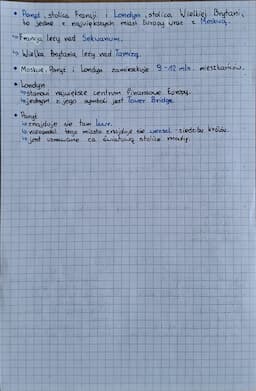 • Paryż, stolica Francji i Londyn, stolica Wielkiej Brytanii,
to jedne z największych miast Europy wraz z Moskwą.
↳ Francja leży nad Sekwaną.
↳ Wielka Brytania leży nad Tamizą.
• Moskwę, Paryż i Londyn zamieszkuje 9-12 mln. mieszkańców.
• Londyn
↳ stanowi największe centrum finansowe Europy.
↳ jednym z jego symboli jest Tower Bridge.
• Paryż
↳ znajduje się tam luwr.
↳ niedaleko tego miasta znajduje się wersal - siedziba królów.
↳ jest uznawane za światową stolicę mody.